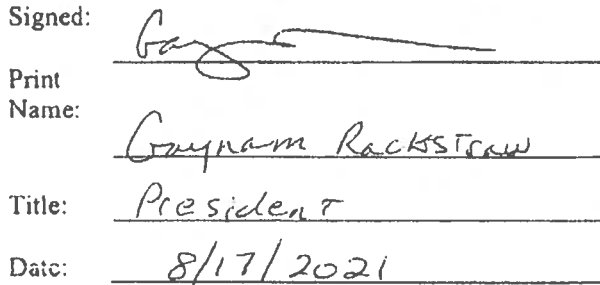 Signed: Gay
Print
Name:
Gaynam Rackstraw
Title: President
Date: 8/17/2021